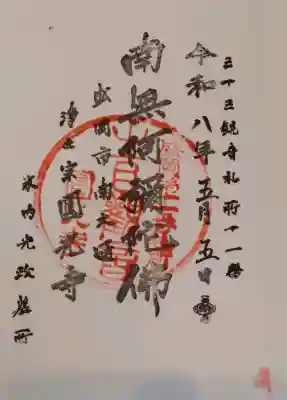 三十三観音札所十一番
令和八年五月五日
南無阿彌陀佛
盛岡市南大通
浄土宗圓光寺
米内光政墓所